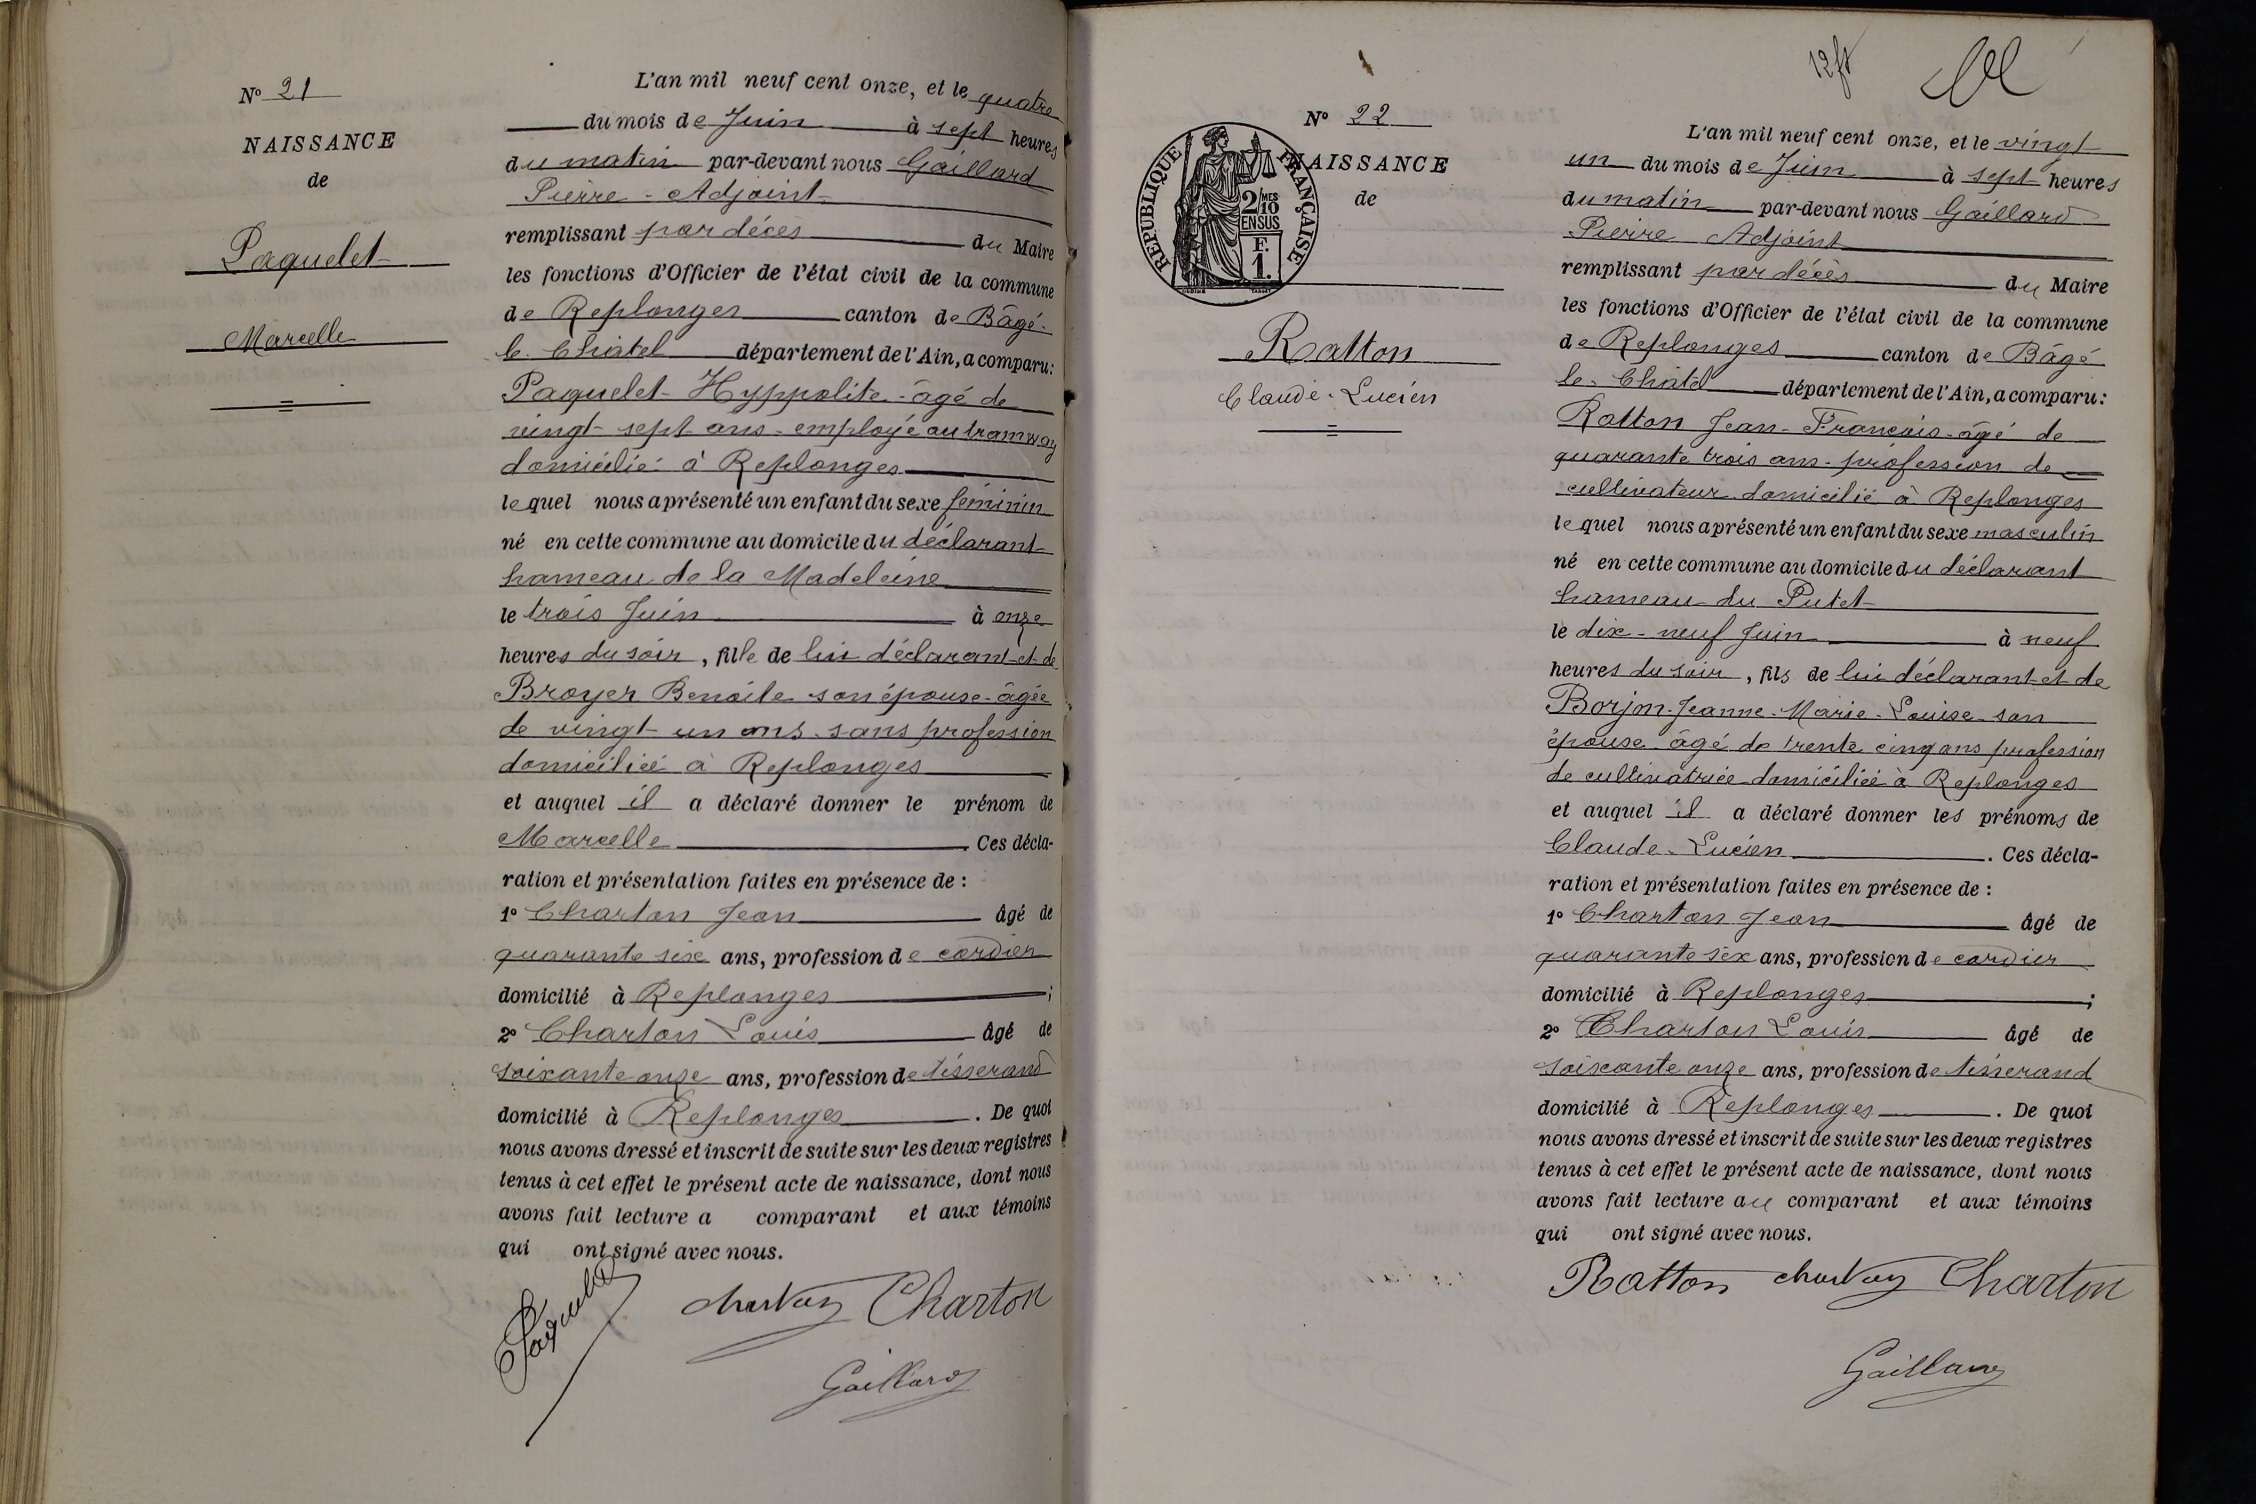 Nº 21
NAISSANCE
de
Paquelet
Marcelle
L'an mil neuf cent onze, et le quatre
du mois de Juin à sept heures
du matin par-devant nous Gaillard
Pierre - Adjoint
remplissant par décès du Maire
les fonctions d'Officier de l'état civil de la commune
de Replonges canton de Bâgé-
le-Châtel département de l'Ain, a comparu:
Paquelet Hyppolite - âgé de
vingt-sept ans - employé au tramway
domicilié à Replonges
lequel nous a présenté un enfant du sexe féminin
né en cette commune au domicile du déclarant
hameau de la Madeleine
le trois Juin à onze
heures du soir, fille de lui déclarant et de
Broyer Benoite son épouse - âgée
de vingt-un ans - sans profession
domiciliée à Replonges
et auquel il a déclaré donner le prénom de
Marcelle. Ces décla-
ration et présentation faites en présence de :
1º Charton Jean âgé de
quarante six ans, profession de cordier
domicilié à Replonges ;
2º Charton Louis âgé de
soixante onze ans, profession de tisserand
domicilié à Replonges. De quoi
nous avons dressé et inscrit de suite sur les deux registres
tenus à cet effet le présent acte de naissance, dont nous
avons fait lecture a comparant et aux témoins
qui ont signé avec nous.
Paquelet Charton Charton
Gaillard
12 ft
Nº 22
NAISSANCE
de
RÉPUBLIQUE FRANÇAISE
2/10 MES
EN SUS
F.
1.
Ratton
Claude-Lucien
L'an mil neuf cent onze, et le vingt
un du mois de Juin à sept heures
du matin par-devant nous Gaillard
Pierre Adjoint
remplissant par décès du Maire
les fonctions d'Officier de l'état civil de la commune
de Replonges canton de Bâgé
le-Châtel département de l'Ain, a comparu:
Ratton Jean-François - âgé de
quarante trois ans - profession de
cultivateur domicilié à Replonges
lequel nous a présenté un enfant du sexe masculin
né en cette commune au domicile du déclarant
hameau du Putet
le dix-neuf Juin à neuf
heures du soir, fils de lui déclarant et de
Borjon Jeanne-Marie-Louise son
épouse âgé de trente cinq ans profession
de cultivatrice domiciliée à Replonges
et auquel il a déclaré donner les prénoms de
Claude-Lucien. Ces décla-
ration et présentation faites en présence de :
1º Charton Jean âgé de
quarante six ans, profession de cordier
domicilié à Replonges ;
2º Charton Louis âgé de
soixante onze ans, profession de tisserand
domicilié à Replonges. De quoi
nous avons dressé et inscrit de suite sur les deux registres
tenus à cet effet le présent acte de naissance, dont nous
avons fait lecture au comparant et aux témoins
qui ont signé avec nous.
Ratton Charton Charton
Gaillard